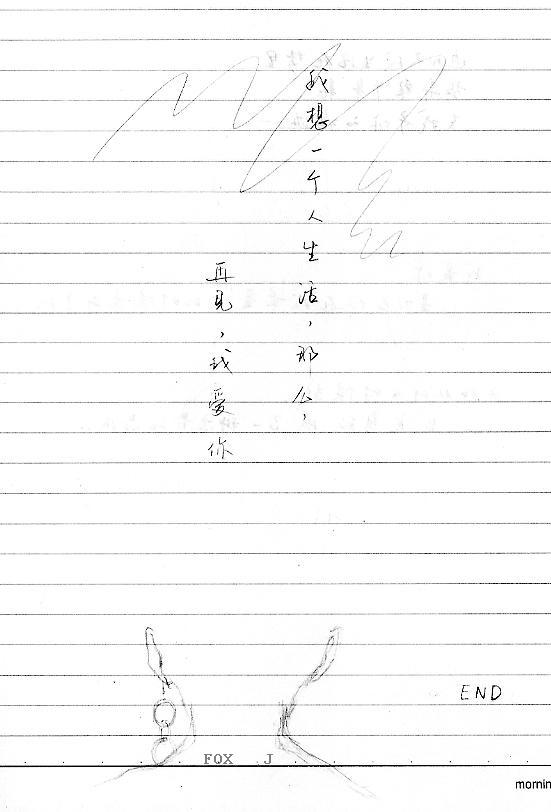 我想一个人生活，那么，
再见，我爱你
END
FOX J
mornin